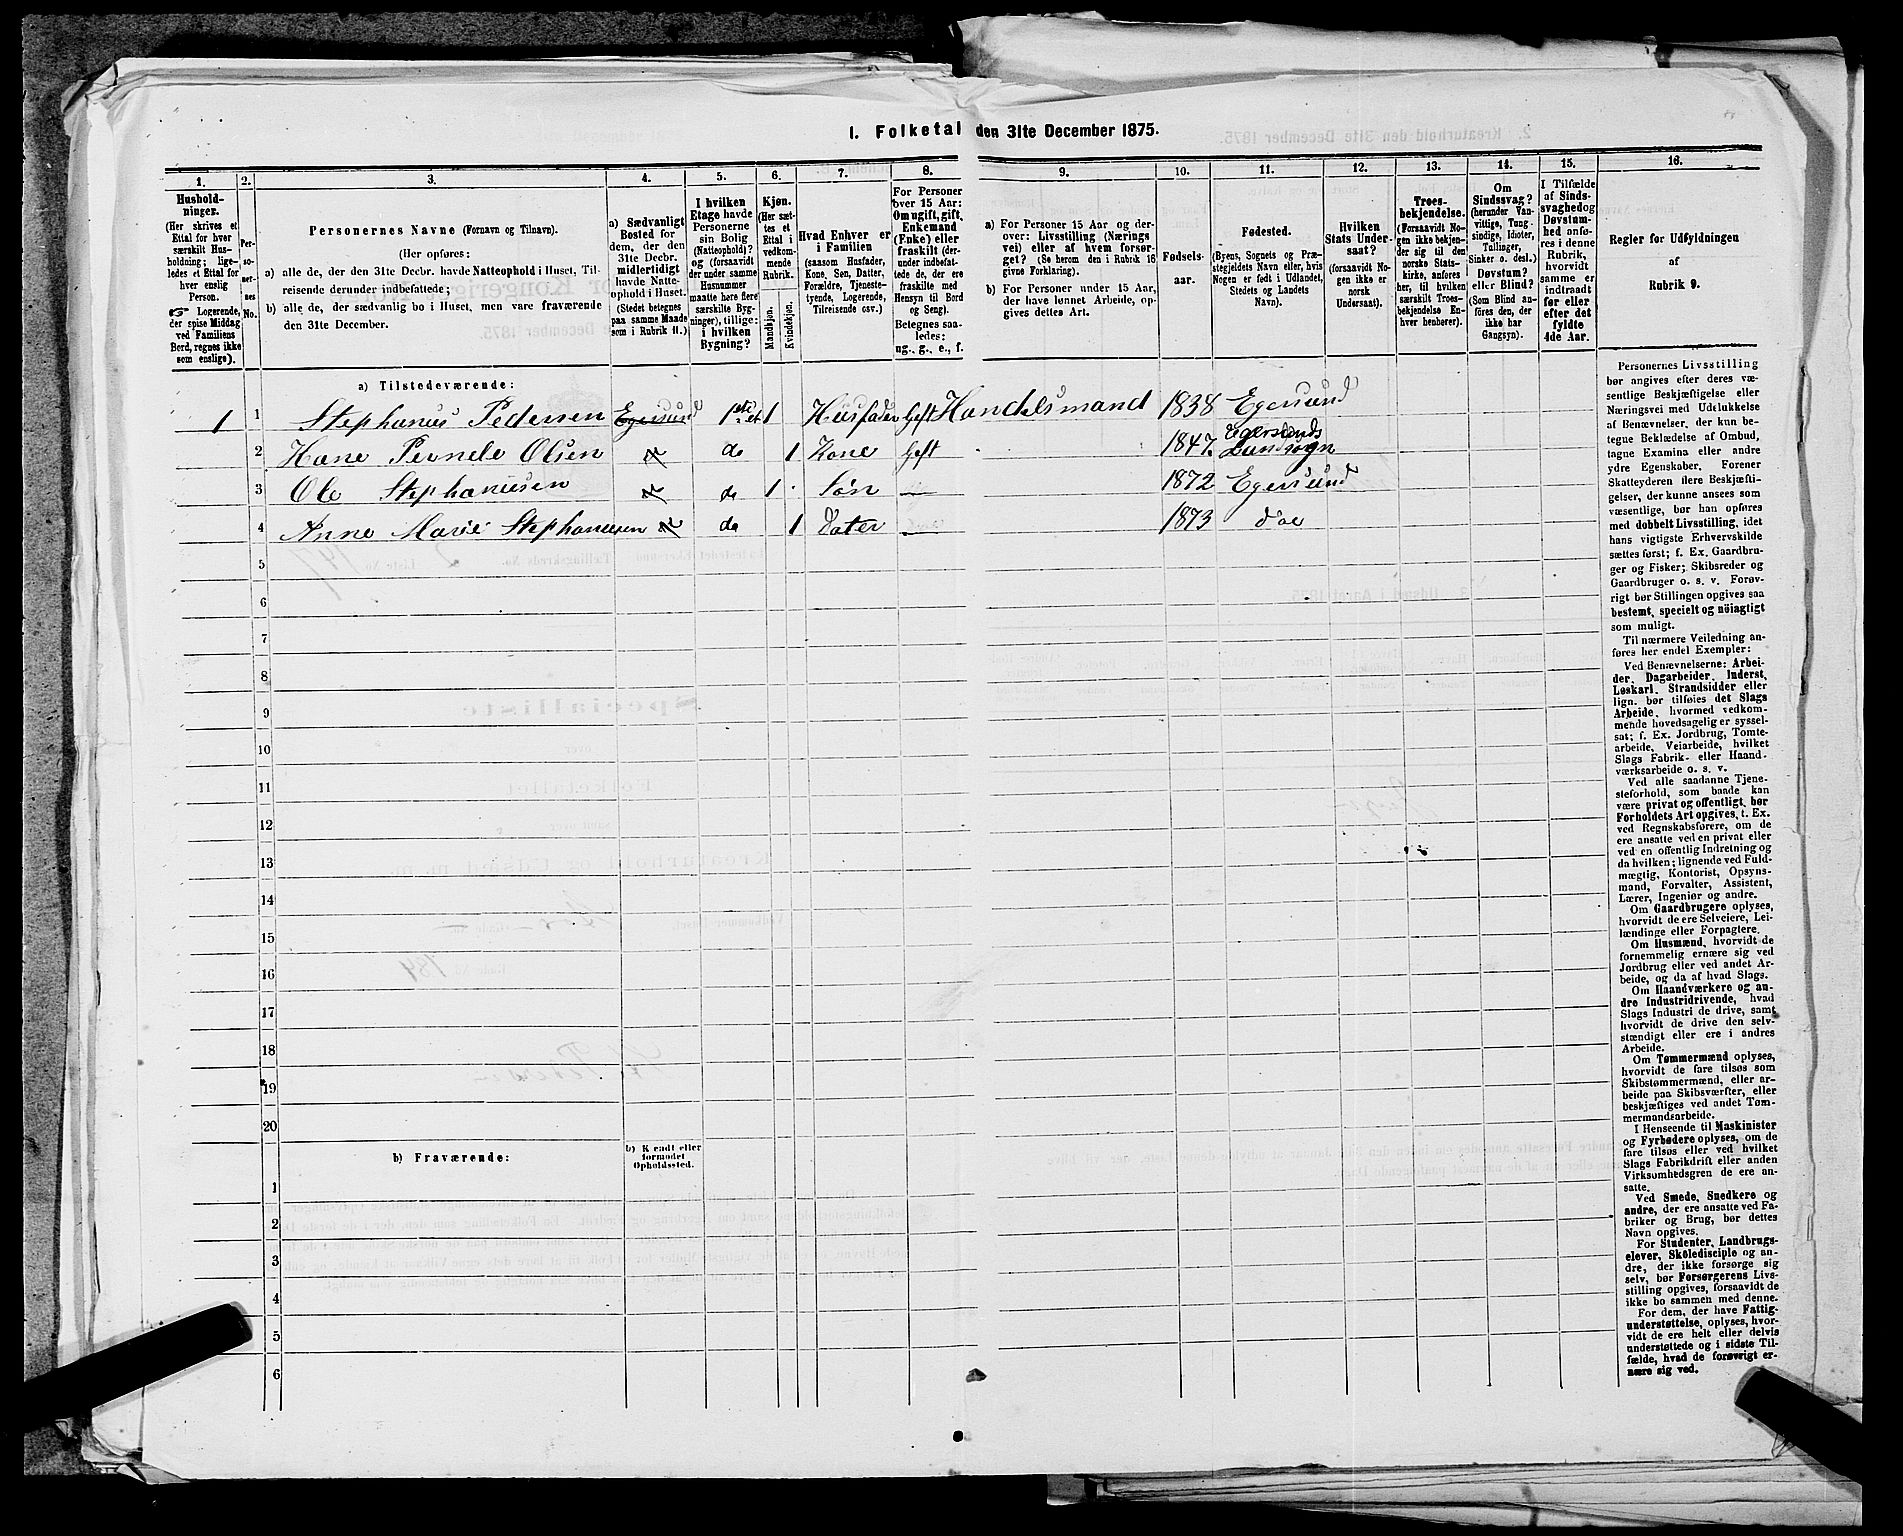 1. Folketal den 31te December 1875.
1. 2. 3. 4. 5. 6. 7. 8. 9. 10. 11. 12. 13. 14. 15. 16.
Husholdninger.
(Her skrives et
Ettal for hver
særskilt Husholdning;
ligeledes et Ettal for
hver enslig
Person.
☞ Logerende,
der spise Middag
ved Familiens
Bord, regnes ikke
som enslige).
Personernes No.
Personernes Navne (Fornavn og Tilnavn).
(Her opføres:
a) alle de, der den 31te Decbr. havde Natteophold i Huset, Tilreisende
derunder indbefattede;
b) alle de, der sædvanlig bo i Huset, men vare fraværende
den 31te December.
a) Sædvanligt
Bosted for
dem, der den
31te Decbr.
midlertidigt
havde Natteophold
i Huset.
(Stedet betegnes
paa samme Maade
som i Rubrik 11.)
I hvilken
Etage havde
Personerne
sin Bolig
(Natteophold)?
og (forsaavidt
der under samme
Husnummer
maatte høre flere
særskilte Bygninger),
tillige:
i hvilken
Bygning?
Kjøn.
(Her sættes
et
Ettal i
vedkommende
Rubrik.
Mandkjøn.
Kvindekjøn.
Hvad Enhver er
i Familien
(saasom Husfader,
Kone, Søn, Datter,
Forældre, Tjenestetyende,
Logerende,
Tilreisende osv.)
For Personer
over 15 Aar:
Om ugift, gift,
Enkemand
(Enke) eller
fraskilt (derunder
indbefattede
de, der ere
fraskilte med
Hensyn til Bord
og Seng).
Betegnes saaledes:
ug., g., e., f.
a) For Personer 15 Aar og derover:
Livsstilling (Næringsvei)
eller af hvem forsørget?
(Se herom den i Rubrik 16
givne Forklaring).
b) For Personer under 15 Aar,
der have lønnet Arbeide, opgives
dettes Art.
Fødselsaar.
Fødested.
(Byens, Sognets og Præstegjeldets
Navn eller, hvis
Nogen er født i Udlandet,
Stedets og Landets
Navn).
Hvilken
Stats Undersaat?
(forsaavidt Nogen
ikke er
norsk
Undersaat).
Troesbekjendelse.
(Forsaavidt Nogen
ikke bekjender
sig til den
norske Statskirke,
anføres
særskilt Troesbekjendelse
Enhver
henhører).
Om
Sindssvag?
(herunder Vanvittige,
Tungsindige,
Idioter,
Tullinger,
Sinker o. desl.)
Døvstum?
eller Blind?
(Som Blind anføres
den, der
ikke har
Gangsyn).
I Tilfælde
af Sindssvaghed og
Døvstumhed
anføres
i denne
Rubrik,
hvorvidt
samme er
indtraadt
før eller
efter det
fyldte
4de Aar.
Regler for Udfyldningen
af
Rubrik 9.
a) Tilstedeværende:
1 1 Stephanus Pedersen Egersund 1ste et. 1 Husfader Gift Handelsmand 1838 Egersund
2 Hane Pernele Olsen do 1 Kone Gift 1847 Egersunds Landsogn
3 Ole Stephanusen do 1 Søn 1872 Egersund
4 Anne Marie Stephanusen do 1 Dater 1873 do
5
6
7
8
9
10
11
12
13
14
15
16
17
18
19
20
b) Fraværende:
b) Kjendt eller
formodet
Opholdssted.
1
2
3
4
5
6
Personernes Livsstilling
bør angives efter deres væsentlige
Beskjæftigelse eller
Næringsvei med Udelukkelse
af Benævnelser, der kun betegne
Beklædelse af Ombud,
tagne Examina eller andre
ydre Egenskaber. Forener
Skatteyderen flere Beskjæftigelser,
der kunne ansees som
væsentlige, bør han opføres
med dobbelt Livsstilling, idet
hans vigtigste Erhvervskilde
sættes først; f. Ex. Gaardbruger
og Fisker; Skibsreder og
Gaardbruger o. s. v. Forøvrigt
bør Stillingen opgives saa
bestemt, specielt og nöiagtigt
som muligt.
Til nærmere Veiledning anføres
her endel Exempler:
Ved Benævnelserne: Arbeider,
Dagarbeider, Inderst,
Løskarl, Strandsidder eller
lign. bør tilføies det Slags
Arbeide, hvormed vedkommende
hovedsagelig er sysselsat;
f. Ex. Jordbrug, Tomtearbeide,
Veiarbeide, hvilket
Slags Fabrik- eller Haandværksarbeide
o. s. v.
Ved alle saadanne Tjenesteforhold,
som baade kan
være privat og offentligt, bør
Forholdets Art opgives, t. Ex.
ved Regnskabsførere, om de
ere ansatte ved en privat eller
ved en offentlig Indretning og
da hvilken; lignende ved Fuldmægtig,
Kontorist, Opsynsmand,
Forvalter, Assistent,
Lærer, Ingeniør og andre.
Om Gaardbrugere oplyses,
hvorvidt de ere Selveiere, Leilændinge
eller Forpagtere.
Om Husmænd, hvorvidt de
fornemmelig ernære sig ved
Jordbrug eller ved andet Arbeide,
og da af hvad Slags.
Om Haandværkere og andre
Industridrivende, hvad
Slags Industri de drive, samt
hvorvidt de drive den selvstændigt
eller ere i andres
Arbeide.
Om Tømmermænd oplyses,
hvorvidt de fare tilsøs som
Skibstømmermænd, eller arbeide
paa Skibsværfter, eller
beskjæftiges ved andet Tømmermandsarbeide.
I Henseende til Maskinister
og Fyrbødere oplyses, om de
fare tilsøs eller ved hvilket
Slags Fabrikdrift eller anden
Virksomhedsgren de ere ansatte.
Ved Smede, Snedkere og
andre, der ere ansatte ved Fabriker
og Brug, bør dettes
Navn opgives.
For Studenter, Landbrugselever,
Skoledisciple og andre,
der ikke forsørge sig
selv, bør Forsørgerens Livsstilling
opgives, forsaavidt de
ikke bo sammen med denne.
For dem, der have Fattigunderstøttelse,
oplyses, hvorvidt
de ere helt eller delvis
understøttede og i sidste Tilfælde,
hvad de forøvrigt ernære
sig ved.